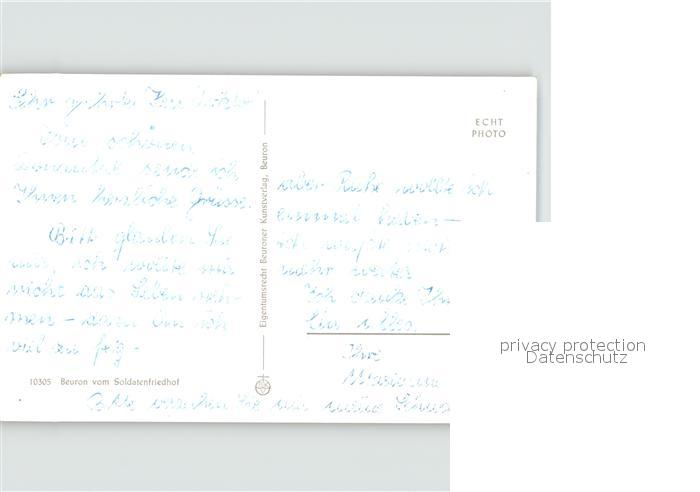 Sehr geehrter Herr
schönen
Donautal sende ich
Ihnen herzliche Grüsse.
Bitte glauben Sie
mir, ich wollte mir
nicht das Leben neh-
men - dazu bin ich
viel zu feig -
10305 Beuron vom Soldatenfriedhof
Eigentumsrecht Beuroner Kunstverlag, Beuron
ECHT
PHOTO
aber Ruhe wollte ich
einmal haben -
ich
weiter
Ich danke
für alles
Ihre
Bitte verzeihen Sie mir meine
privacy protection
Datenschutz